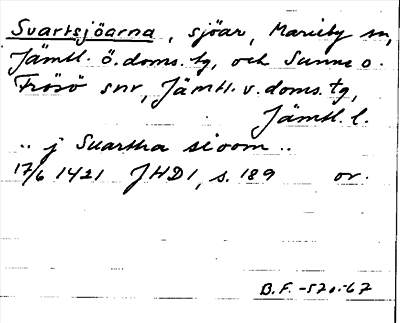 Svartsjöarna, sjöar, Marieby sn,
Jämtl. ö. doms. tg, och Sunne o.
Frösö snr, Jämtl. v. doms. tg,
Jämtl. l.
.. j Suartha sioom ..
17/6 1421 JHD1, s. 189 or.
B.F. -520-67